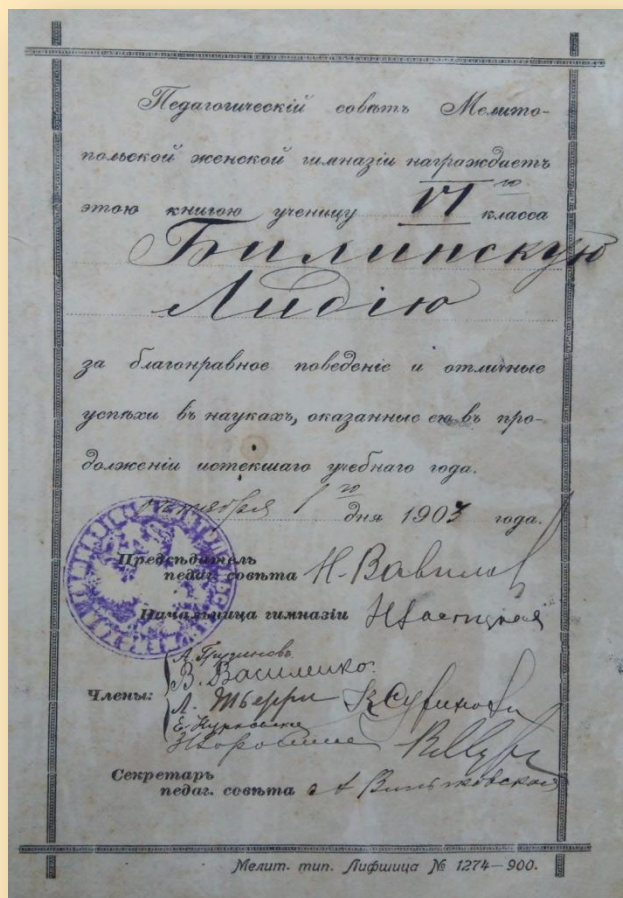 Педагогическій совѣтъ Мелито-
польской женской гимназіи награждаетъ
этою книгою ученицу VI го класса
Билинскую
Лидію
за благонравное поведеніе и отличные
успѣхи въ наукахъ, оказанные ею въ про-
долженіи истекшаго учебнаго года.
октября 1 го дня 1903 года.
Предсѣдатель
педаг. совѣта Н. Вавилов
Начальница гимназіи
Члены:
В. Василенко
Л. Тьерри
Секретарь
педаг. совѣта
Мелит. тип. Лифшица № 1274—900.